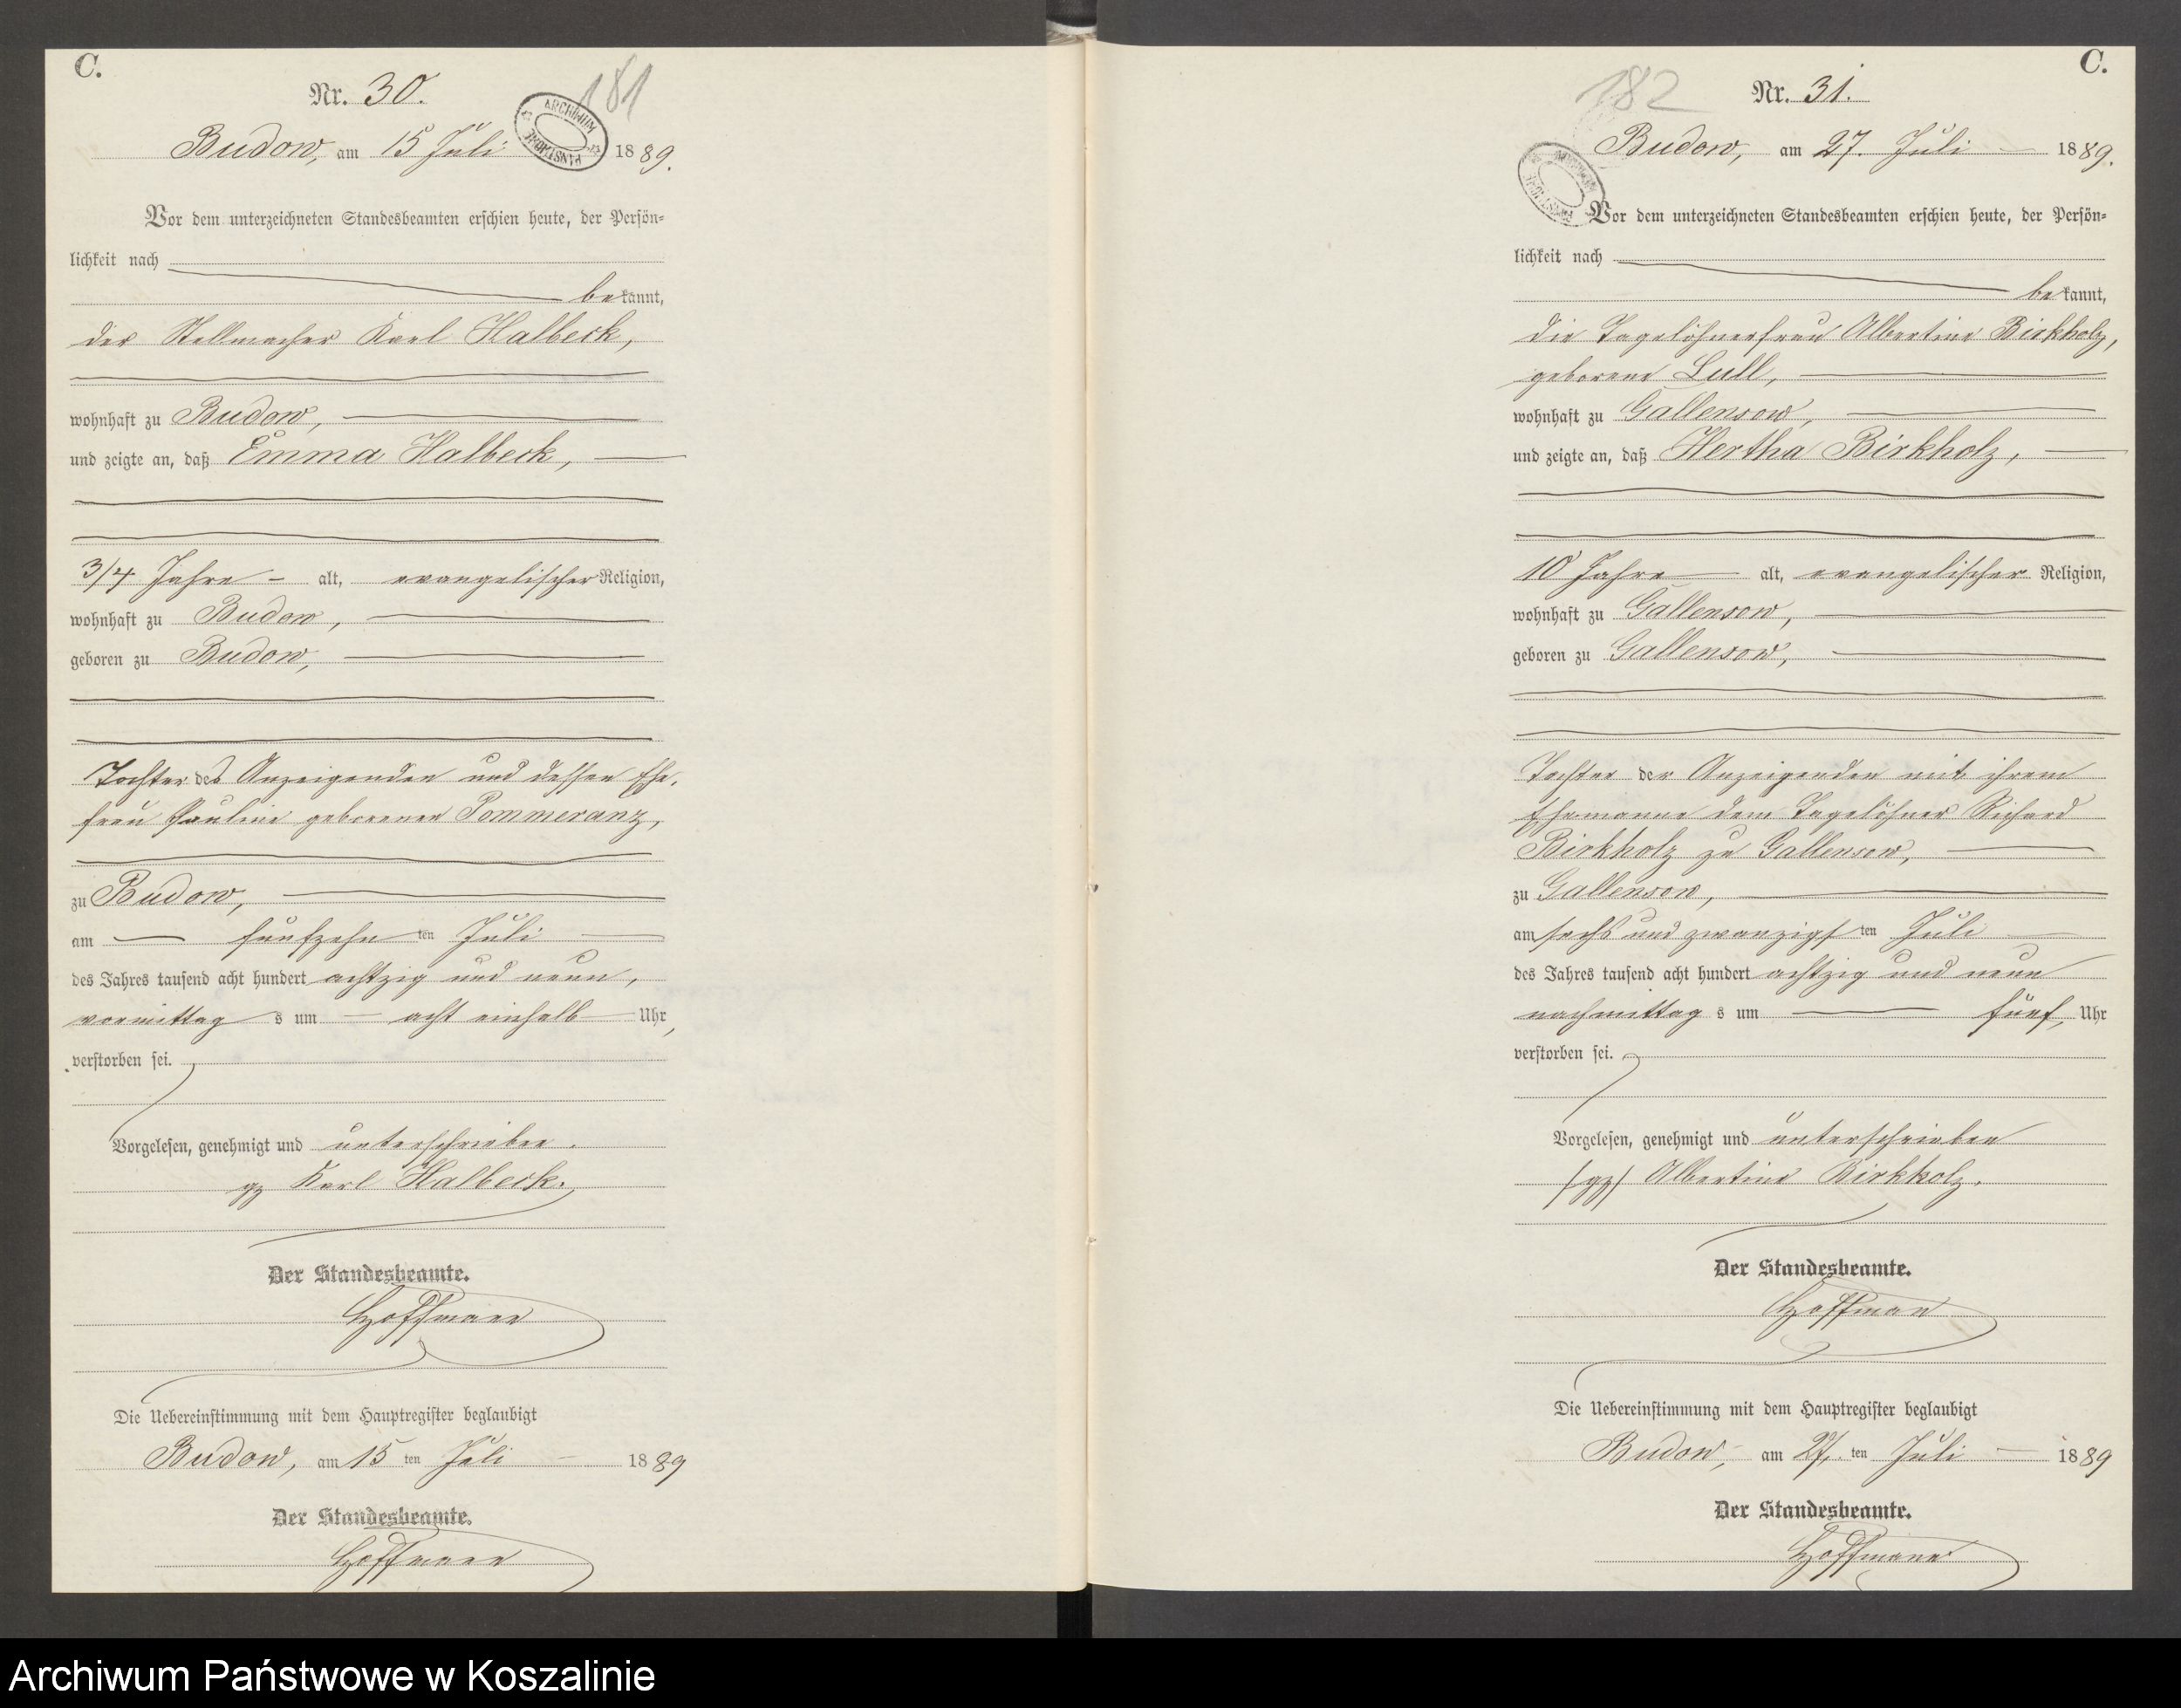 C.
Nr. 30.
181
ARCHIWUM PAŃSTWOWE
Budow, am 15 Juli 1889.
Vor dem unterzeichneten Standesbeamten erschien heute, der Persön-
lichkeit nach
bekannt,
der Stellmacher Karl Halbeck,
wohnhaft zu Budow,
und zeigte an, daß Emma Halbeck,
3/4 Jahre - alt, evangelischer Religion,
wohnhaft zu Budow,
geboren zu Budow,
Tochter des Anzeigenden und dessen Ehe-
frau Pauline geborenen Pommeranz,
zu Budow,
am fünfzehn ten Juli
des Jahres tausend acht hundert achtzig und neun,
vormittag s um acht einhalb Uhr,
verstorben sei.
Vorgelesen, genehmigt und unterschrieben.
gz Karl Halbeck.
Der Standesbeamte.
Hoffmann
Die Uebereinstimmung mit dem Hauptregister beglaubigt
Budow, am 15 ten Juli 1889
Der Standesbeamte.
Hoffmann
C.
182
Nr. 31.
Budow, am 27. Juli 1889.
Vor dem unterzeichneten Standesbeamten erschien heute, der Persön-
lichkeit nach
bekannt,
die Tagelöhnerfrau Albertine Birkholz,
geborene Lull,
wohnhaft zu Gallensow,
und zeigte an, daß Hertha Birkholz,
10 Jahre alt, evangelischer Religion,
wohnhaft zu Gallensow,
geboren zu Gallensow,
Tochter der Anzeigenden mit ihrem
Ehemanne dem Tagelöhner Richard
Birkholz zu Gallensow,
zu Gallensow,
am sechs und zwanzigs ten Juli
des Jahres tausend acht hundert achtzig und neun
nachmittag s um fünf, Uhr
verstorben sei.
Vorgelesen, genehmigt und unterschrieben
/gz/ Albertine Birkholz.
Der Standesbeamte.
Hoffmann
Die Uebereinstimmung mit dem Hauptregister beglaubigt
Budow, am 27. ten Juli 1889
Der Standesbeamte.
Hoffmann
Archiwum Państwowe w Koszalinie